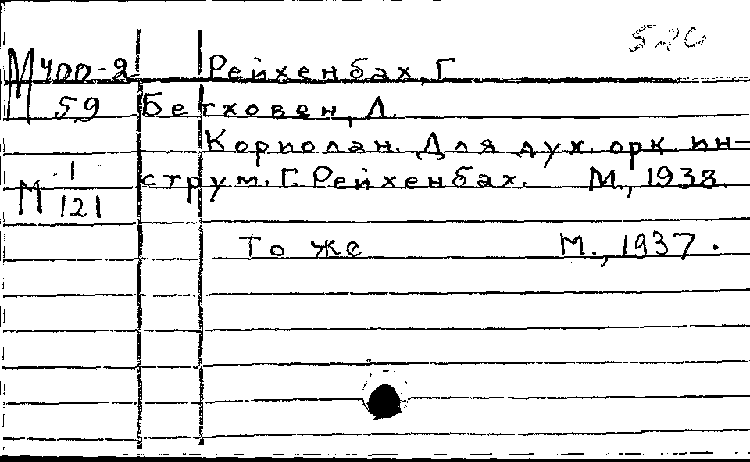 520
М 400-2 Рейхенбах, Г
59 Бетховен, Л.
Кориолан. Для дух. орк. ин-
М 1 струм. Г. Рейхенбах. М., 1938.
121
То же М., 1937.